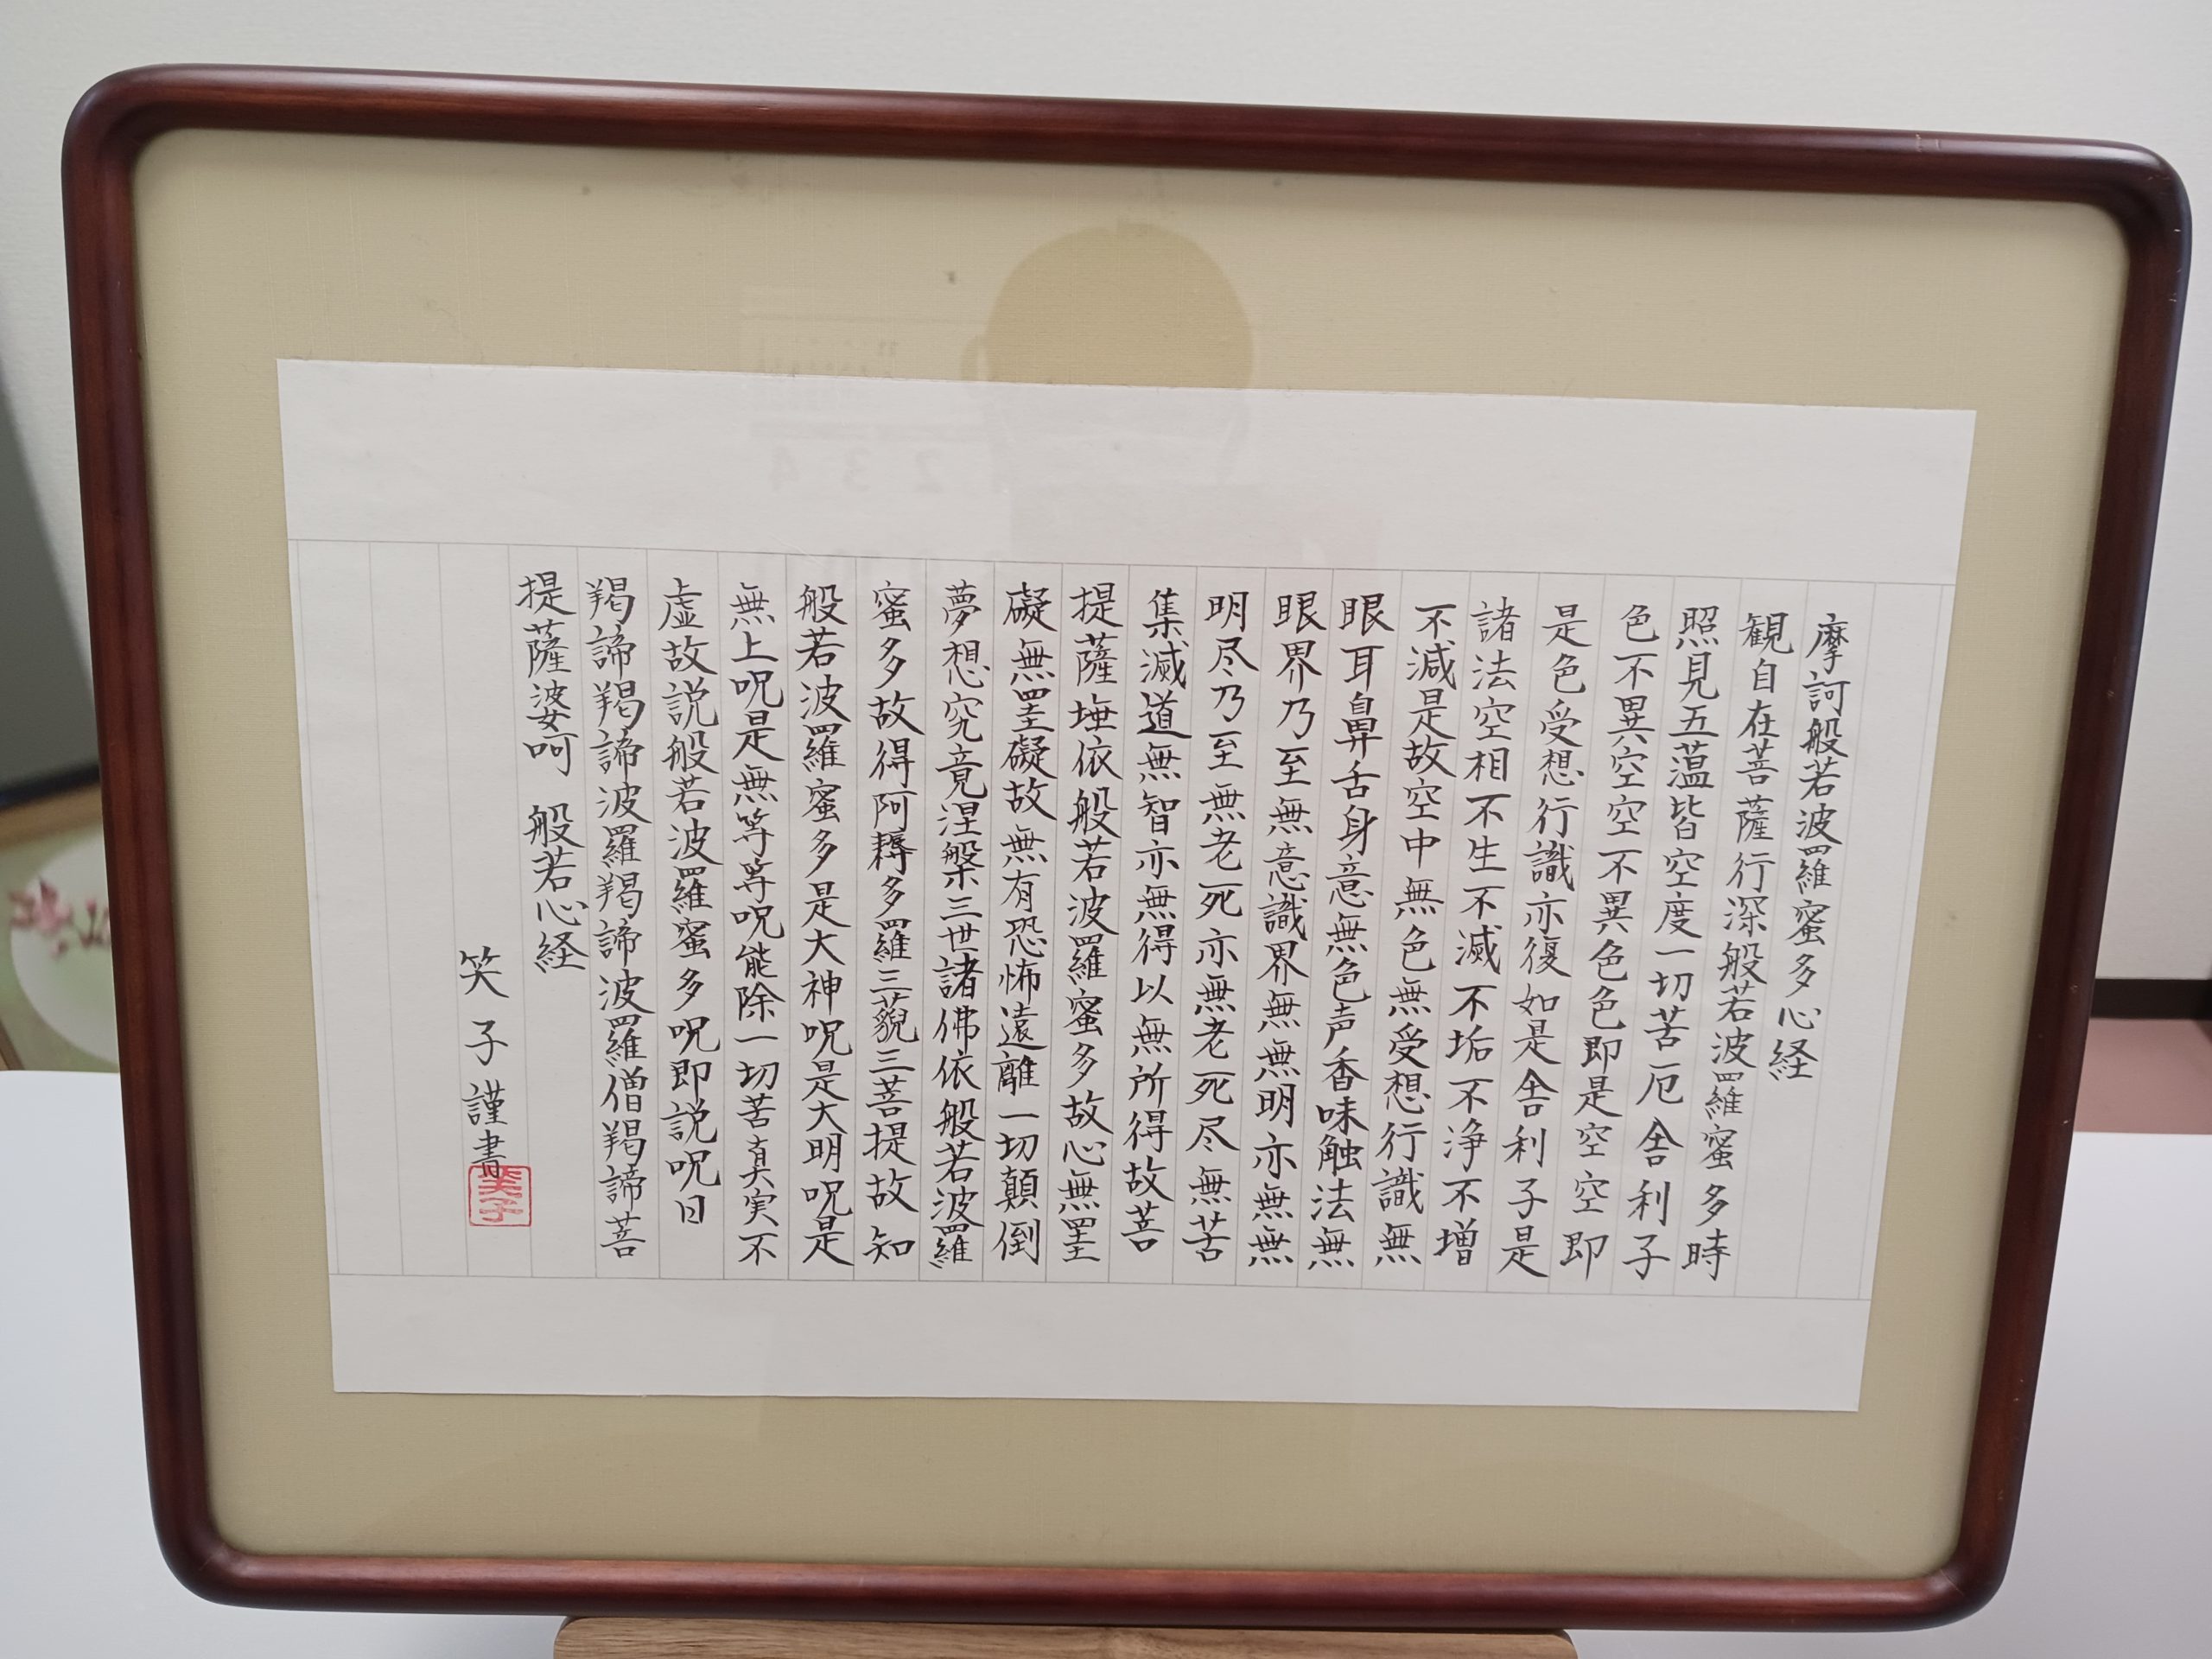 摩訶般若波羅蜜多心経
観自在菩薩行深般若波羅蜜多時
照見五蘊皆空度一切苦厄舎利子
色不異空空不異色色即是空空即
是色受想行識亦復如是舎利子是
諸法空相不生不滅不垢不浄不増
不減是故空中無色無受想行識無
眼耳鼻舌身意無色声香味触法無
眼界乃至無意識界無無明亦無無
明尽乃至無老死亦無老死尽無苦
集滅道無智亦無得以無所得故菩
提薩埵依般若波羅蜜多故心無罣
礙無罣礙故無有恐怖遠離一切顛倒
夢想究竟涅槃三世諸佛依般若波羅
蜜多故得阿耨多羅三藐三菩提故知
般若波羅蜜多是大神呪是大明呪是
無上呪是無等等呪能除一切苦真実不
虚故説般若波羅蜜多呪即説呪曰
羯諦羯諦波羅羯諦波羅僧羯諦菩
提薩婆呵 般若心経
笑子謹書
笑子
2 3 4